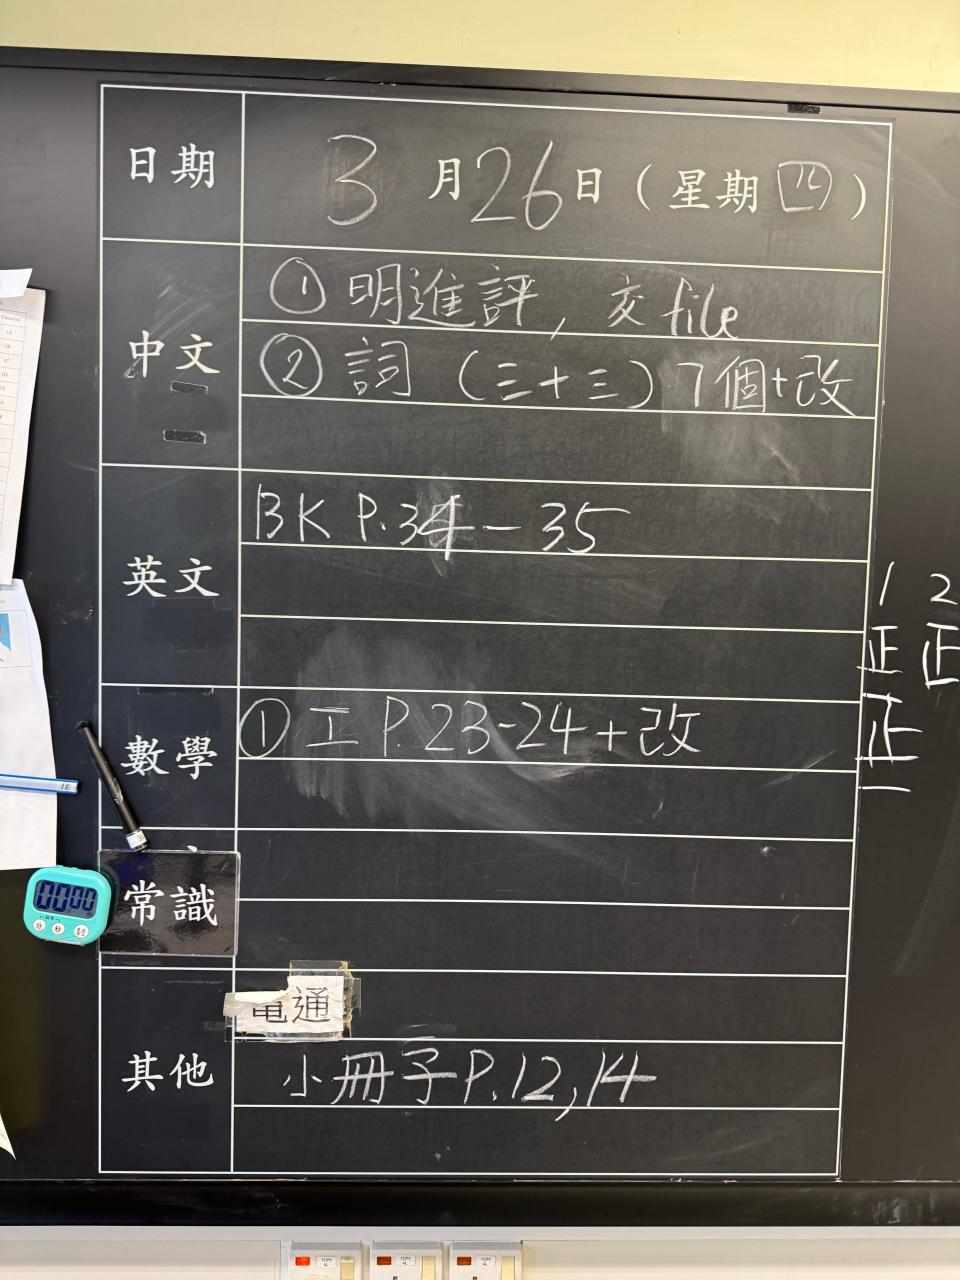 日期 3月26日（星期四）
中文
① 明進評, 交file
② 詞 (三十三) 7個+改
英文
BK P.34-35
數學
① 工 P.23-24+改
常識
其他
電通
小冊子P.12,14
1 2
正 正
正
一
00:00
分 秒
1E